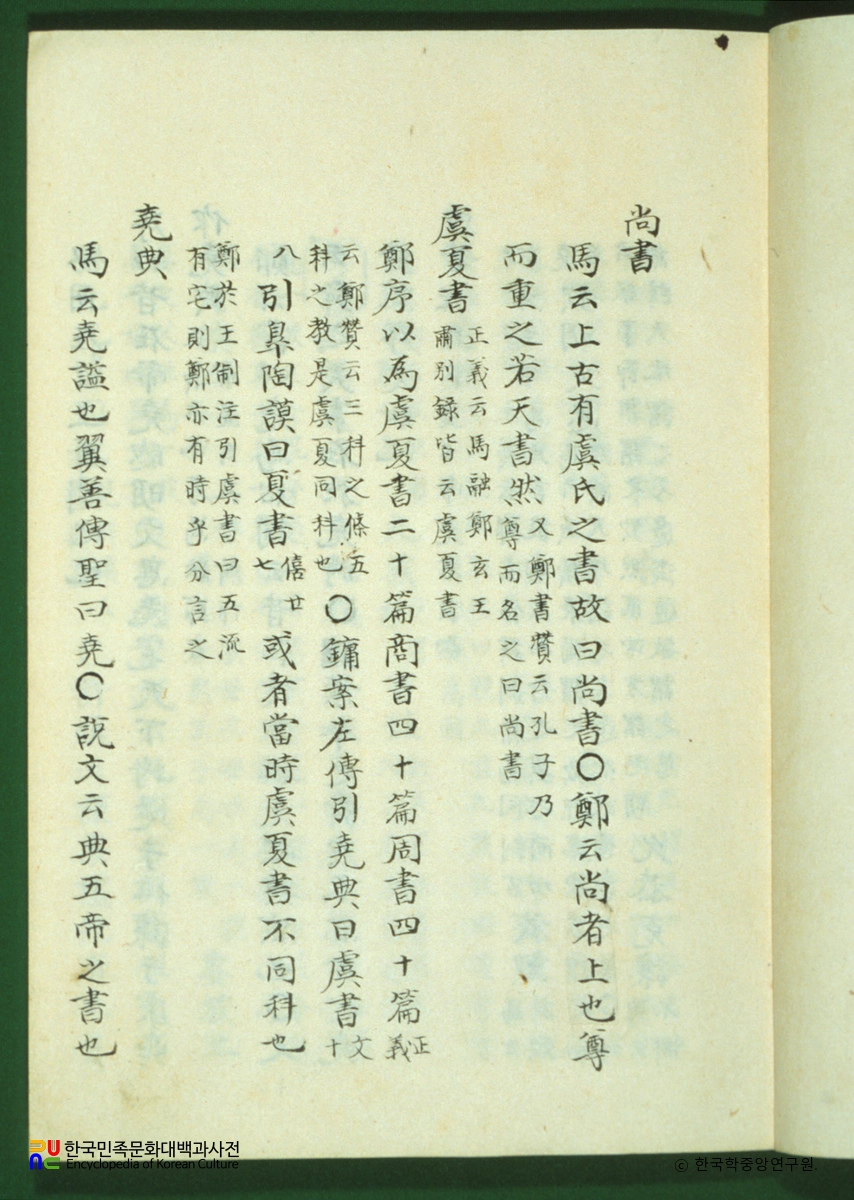 尚書
馬云上古有虞氏之書故曰尚書○鄭云尚者上也尊
而重之若天書然又鄭書贊云孔子乃尊而名之曰尚書
虞夏書正義云馬融鄭玄王肅別錄皆云虞夏書
鄭序以為虞夏書二十篇商書四十篇周書四十篇正義
云鄭贊云三科之條五科之教是虞夏同科也○鏞案左傳引堯典曰虞書文十
八引皐陶謨曰夏書僖廿七或者當時虞夏書不同科也
鄭於王制注引虞書曰五流有宅則鄭亦有時乎分言之
堯典
馬云堯謚也翼善傳聖曰堯○說文云典五帝之書也
한국민족문화대백과사전
Encyclopedia of Korean Culture
© 한국학중앙연구원